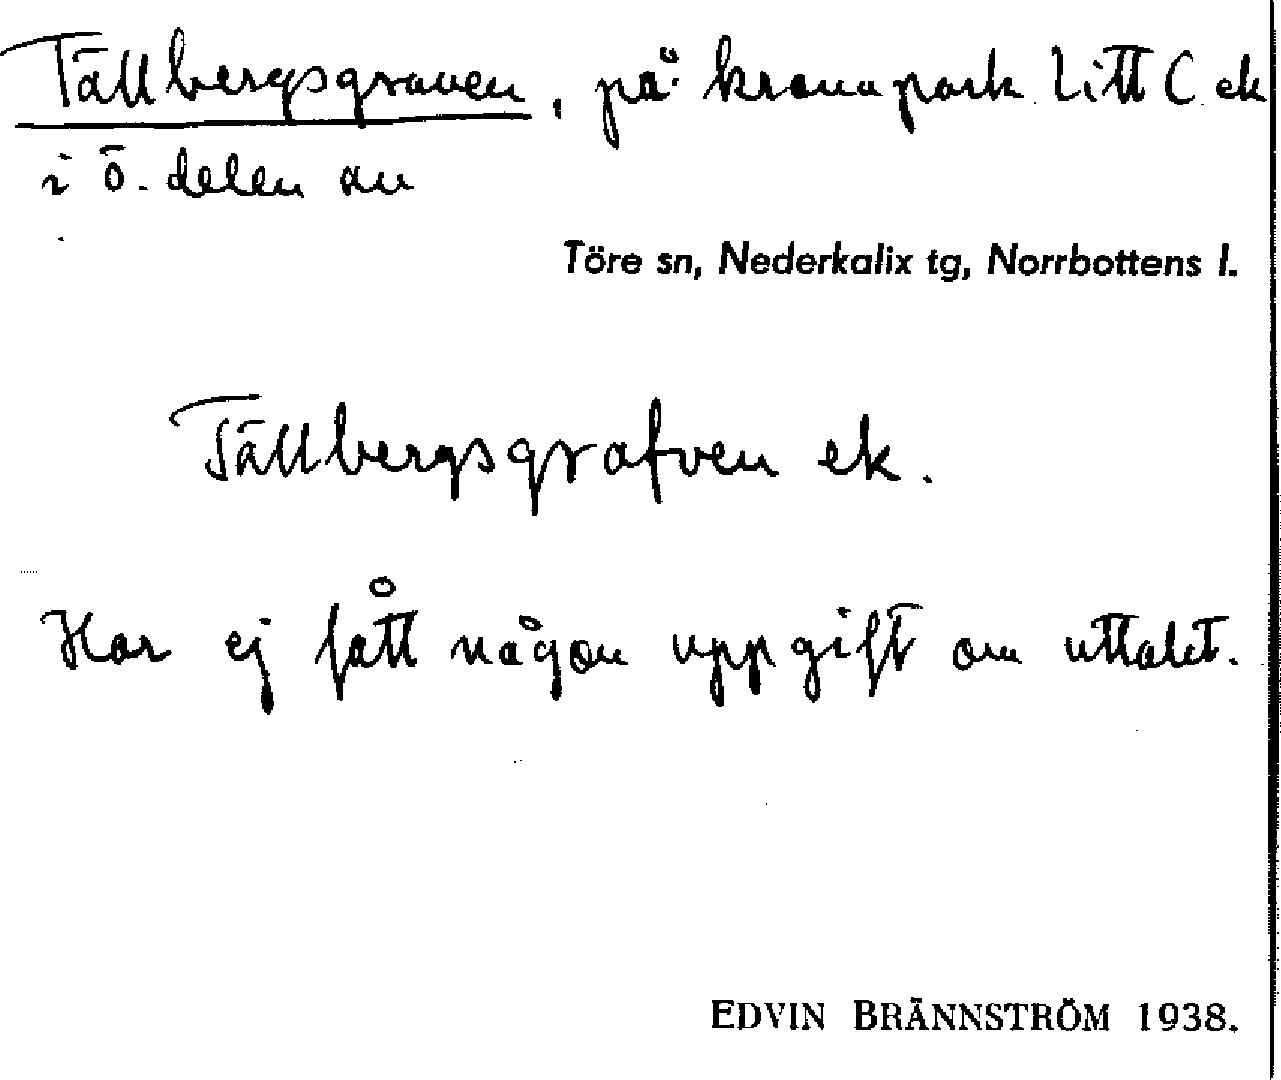 Tällbergsgraven, på kronopark Litt C ek
i ö. delen av
Töre sn, Nederkalix tg, Norrbottens l.
Tällbergsgrafven ek.
Har ej fått någon uppgift om uttalet.
EDVIN BRÄNNSTRÖM 1938.